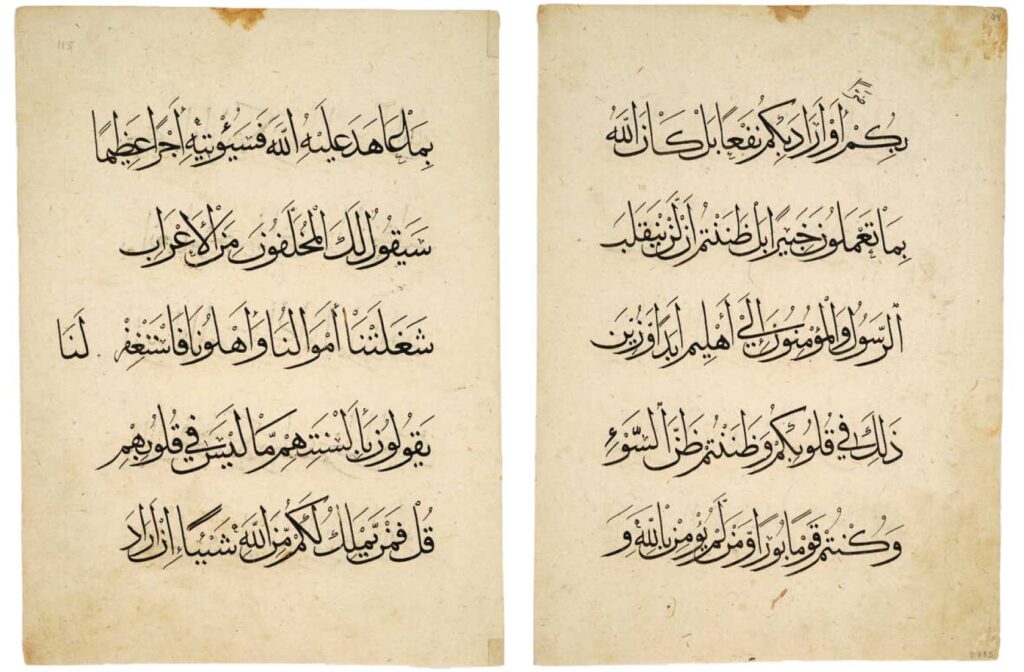 بِمَا عَاهَدَ عَلَيْهُ اللَّهَ فَسَيُؤْتِيهِ أَجْرًا عَظِيمًا
سَيَقُولُ لَكَ الْمُخَلَّفُونَ مِنَ الْأَعْرَابِ
شَغَلَتْنَا أَمْوَالُنَا وَأَهْلُونَا فَاسْتَغْفِرْ لَنَا
يَقُولُونَ بِأَلْسِنَتِهِمْ مَّا لَيْسَ فِي قُلُوبِهِمْ
قُلْ فَمَن يَمْلِكُ لَكُم مِّنَ اللَّهِ شَيْئًا إِنْ أَرَادَ
ضرا
بِكُمْ أَوْ أَرَادَ بِكُمْ نَفْعًا بَلْ كَانَ اللَّهُ
بِمَا تَعْمَلُونَ خَبِيرًا بَلْ ظَنَنتُمْ أَن لَّن يَنقَلِبَ
الرَّسُولُ وَالْمُؤْمِنُونَ إِلَىٰ أَهْلِيهِمْ أَبَدًا وَزُيِّنَ
ذَٰلِكَ فِي قُلُوبِكُمْ وَظَنَنتُمْ ظَنَّ السَّوْءِ
وَكُنتُمْ قَوْمًا بُورًا وَمَن لَّمْ يُؤْمِن بِاللَّهِ وَ